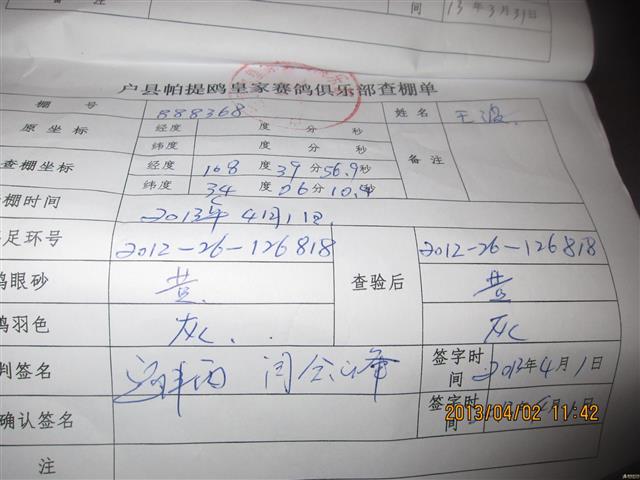 备注
间 13年3月31日
户县帕提鸥皇家赛鸽俱乐部查棚单
棚号 B88368 姓名 王波
原坐标 经度 度 分 秒 备注
纬度 度 分 秒
查棚坐标 经度 108度39分56.9秒
纬度 34度26分10.9秒
棚时间 2013年4月1日
足环号 2012-26-126818 查验后 2012-26-126818
眼砂 黄 黄
羽色 灰 灰
判签名 签字时间 2013年4月1日
确认签名 签字时间
注
2013/04/02 11:42